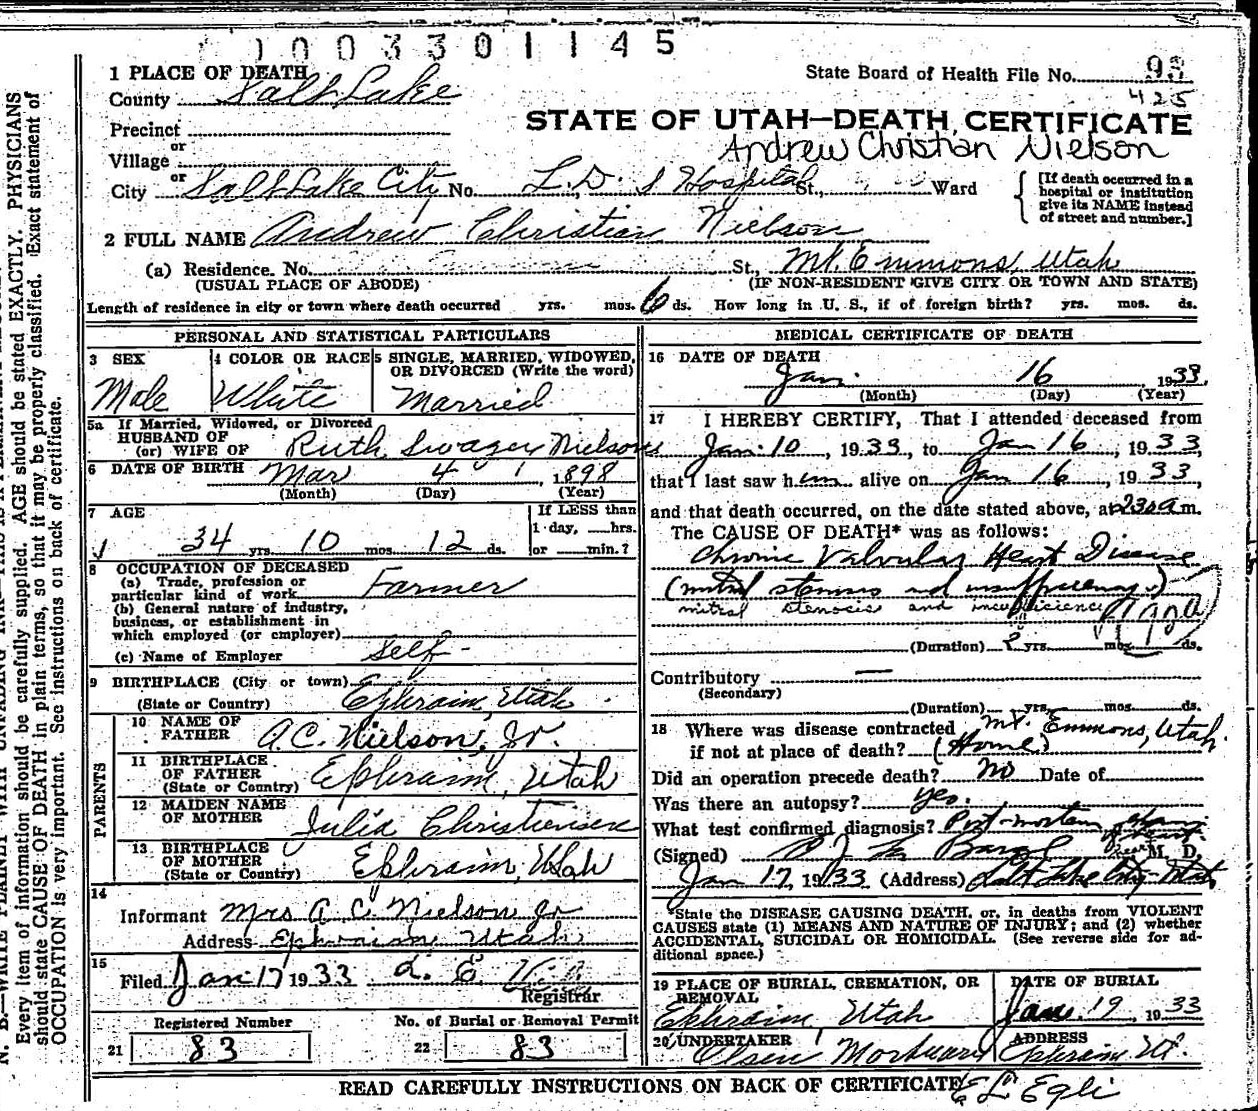 1003301145
1 PLACE OF DEATH
State Board of Health File No. 93
County Salt Lake
425
Precinct
STATE OF UTAH—DEATH CERTIFICATE
or
Andrew Christian Nielson
Village
or
City Salt Lake City No. L.D.S Hospital St., Ward
[If death occurred in a
hospital or institution
give its NAME instead
of street and number.]
2 FULL NAME Andrew Christian Nielson
(a) Residence. No. St., Mt. Emmons, Utah
(USUAL PLACE OF ABODE) (IF NON-RESIDENT GIVE CITY OR TOWN AND STATE)
Length of residence in city or town where death occurred yrs. mos. 6 ds. How long in U. S., if of foreign birth? yrs. mos. ds.
PERSONAL AND STATISTICAL PARTICULARS
3 SEX 4 COLOR OR RACE 5 SINGLE, MARRIED, WIDOWED,
OR DIVORCED (Write the word)
Male White Married
5a If Married, Widowed, or Divorced
HUSBAND OF
(or) WIFE OF Ruth Swager Nielson
6 DATE OF BIRTH Mar 4, 1898
(Month) (Day) (Year)
7 AGE
If LESS than
1 day, hrs.
34 yrs. 10 mos. 12 ds. or min.?
8 OCCUPATION OF DECEASED
(a) Trade, profession or
particular kind of work Farmer
(b) General nature of industry,
business, or establishment in
which employed (or employer)
(c) Name of Employer Self-
9 BIRTHPLACE (City or town)
(State or Country) Ephraim, Utah
PARENTS
10 NAME OF
FATHER A.C. Nielson, Jr.
11 BIRTHPLACE
OF FATHER
(State or Country) Ephraim, Utah
12 MAIDEN NAME
OF MOTHER Julia Christensen
13 BIRTHPLACE
OF MOTHER
(State or Country) Ephraim, Utah
14
Informant Mrs A C Nielson Jr
Address Ephraim Utah
15
Filed Jan 17 1933
Registrar
Registered Number No. of Burial or Removal Permit
21 83 22 83
MEDICAL CERTIFICATE OF DEATH
16 DATE OF DEATH
Jan. 16, 1933.
(Month) (Day) (Year)
17 I HEREBY CERTIFY, That I attended deceased from
Jan. 10, 1933, to Jan 16, 1933,
that I last saw him alive on Jan 16, 1933,
and that death occurred, on the date stated above, at 230 a m.
The CAUSE OF DEATH* was as follows:
Chronic Valvular Heart Disease
(mitral stenosis and insufficiency.)
mitral stenosis and insufficiency
(Duration) 2 yrs. mos. ds.
Contributory —
(Secondary)
(Duration) yrs. mos. ds.
18 Where was disease contracted Mt. Emmons, Utah
if not at place of death? (Home)
Did an operation precede death? no Date of
Was there an autopsy? yes.
What test confirmed diagnosis? Post-mortem
(Signed) M. D.
Jan 17, 1933 (Address) Salt Lake City Utah
*State the DISEASE CAUSING DEATH, or, in deaths from VIOLENT
CAUSES state (1) MEANS AND NATURE OF INJURY; and (2) whether
ACCIDENTAL, SUICIDAL OR HOMICIDAL. (See reverse side for ad-
ditional space.)
19 PLACE OF BURIAL, CREMATION, OR
REMOVAL
DATE OF BURIAL
Ephraim, Utah Jan. 19, 1933
20 UNDERTAKER ADDRESS
Olsen Mortuary Ephraim Ut.
READ CAREFULLY INSTRUCTIONS ON BACK OF CERTIFICATE
E L Egli
Every item of information should be carefully supplied. AGE should be stated EXACTLY. PHYSICIANS
should state CAUSE OF DEATH in plain terms, so that it may be properly classified. Exact statement of
OCCUPATION is very important. See instructions on back of certificate.